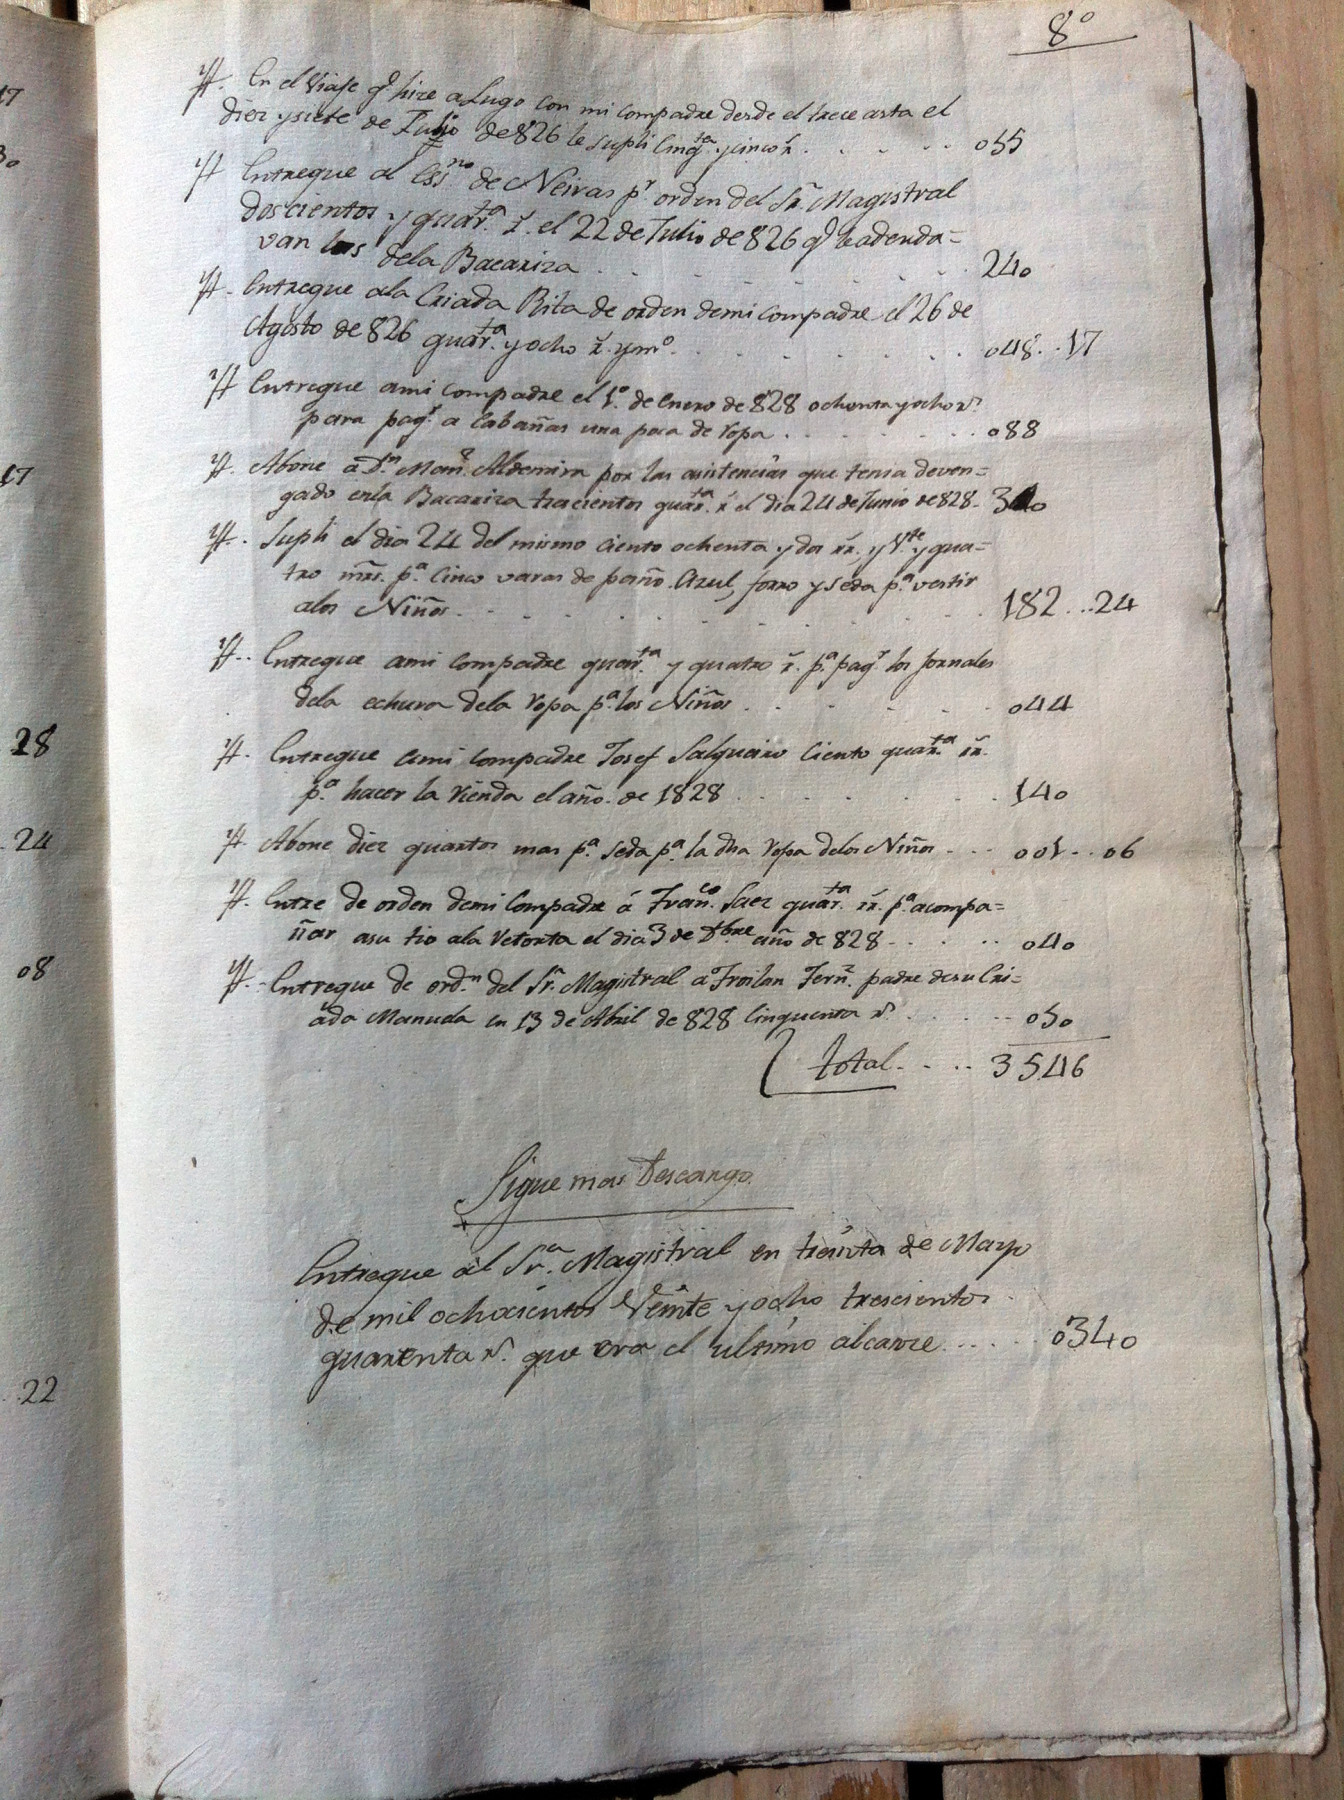 8º
Yt. En el Viaje q.e hize a Lugo con mi compadre desde el trece asta el
diez ysiete de Julio de 826 le supli Cinq.ta y cinco r.s . . . . . 055
Yt Entregue al Ess.no de Neiras p.r orden del Sr. Magistral
doscientos y quar.ta r.s el 22 de Julio de 826 q.e le adeuda=
van los dela Bacariza . . . . . . . . 240
Yt. Entregue ala Criada Rita de orden demi compadre el 26 de
Agosto de 826 quar.ta y ocho r.s y m.o . . . . . . . 048 . . 17
Yt Entregue ami compadre el 1.º de Enero de 828 ochenta yocho r.s
para pag.r a Cabañas una poca de ropa . . . . . . . 088
Yt. Abone a D.n Man.l Aldemira por las asistencias que tenia deven=
gado enla Bacariza trescientos quar.ta r.s el dia 24 de Junio de 828 - 340
Yt. Supli el dia 24 del mismo ciento ochenta y dos rr.s, y V.te y qua=
tro mrs. p.a Cinco varas de paño Azul, forro y seda p.a vestir
alos Niños . . . . . . . . . . 182 . . . 24
Yt. . Entregue ami Compadre quar.ta y quatro r.s p.a pag.r los jornales
dela echura dela ropa p.a los Niños . . . . . . 044
Yt. Entregue ami Compadre Josef Salgueiro Ciento quar.ta rr.s
p.a hacer la vienda el año de 1828 . . . . . . 140
Yt. Abone diez quartos mas p.a seda p.a la dha ropa delos Niños . . . 001 . . 06
Yt. Entre de orden demi Compadre á Fran.co Saez quar.ta rr.s p.a acompa=
ñar asu tio ala Retorta el dia 3 de D.bre año de 828 . . . . . 040
Yt. Entregue de ord.n del Sr. Magistral a Froilan Fern.z padre desu Cri=
ada Manuela en 13 de Abril de 828 cinquenta r.s . . . . . 050
total . . . . 3546
Sigue mas Descargo
Entregue al Sr. Magistral en treinta de Mayo
de mil ochocientos Veinte y ocho trescientos
quarenta r.s que era el ultimo alcance . . . . . 0340
17
30
17
28
24
08
22